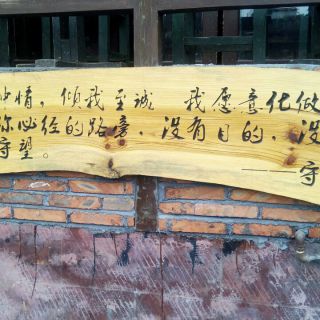 中情，倾我至诚 我愿意化做
你必经的路旁，没有目的，没
守望。 ——守